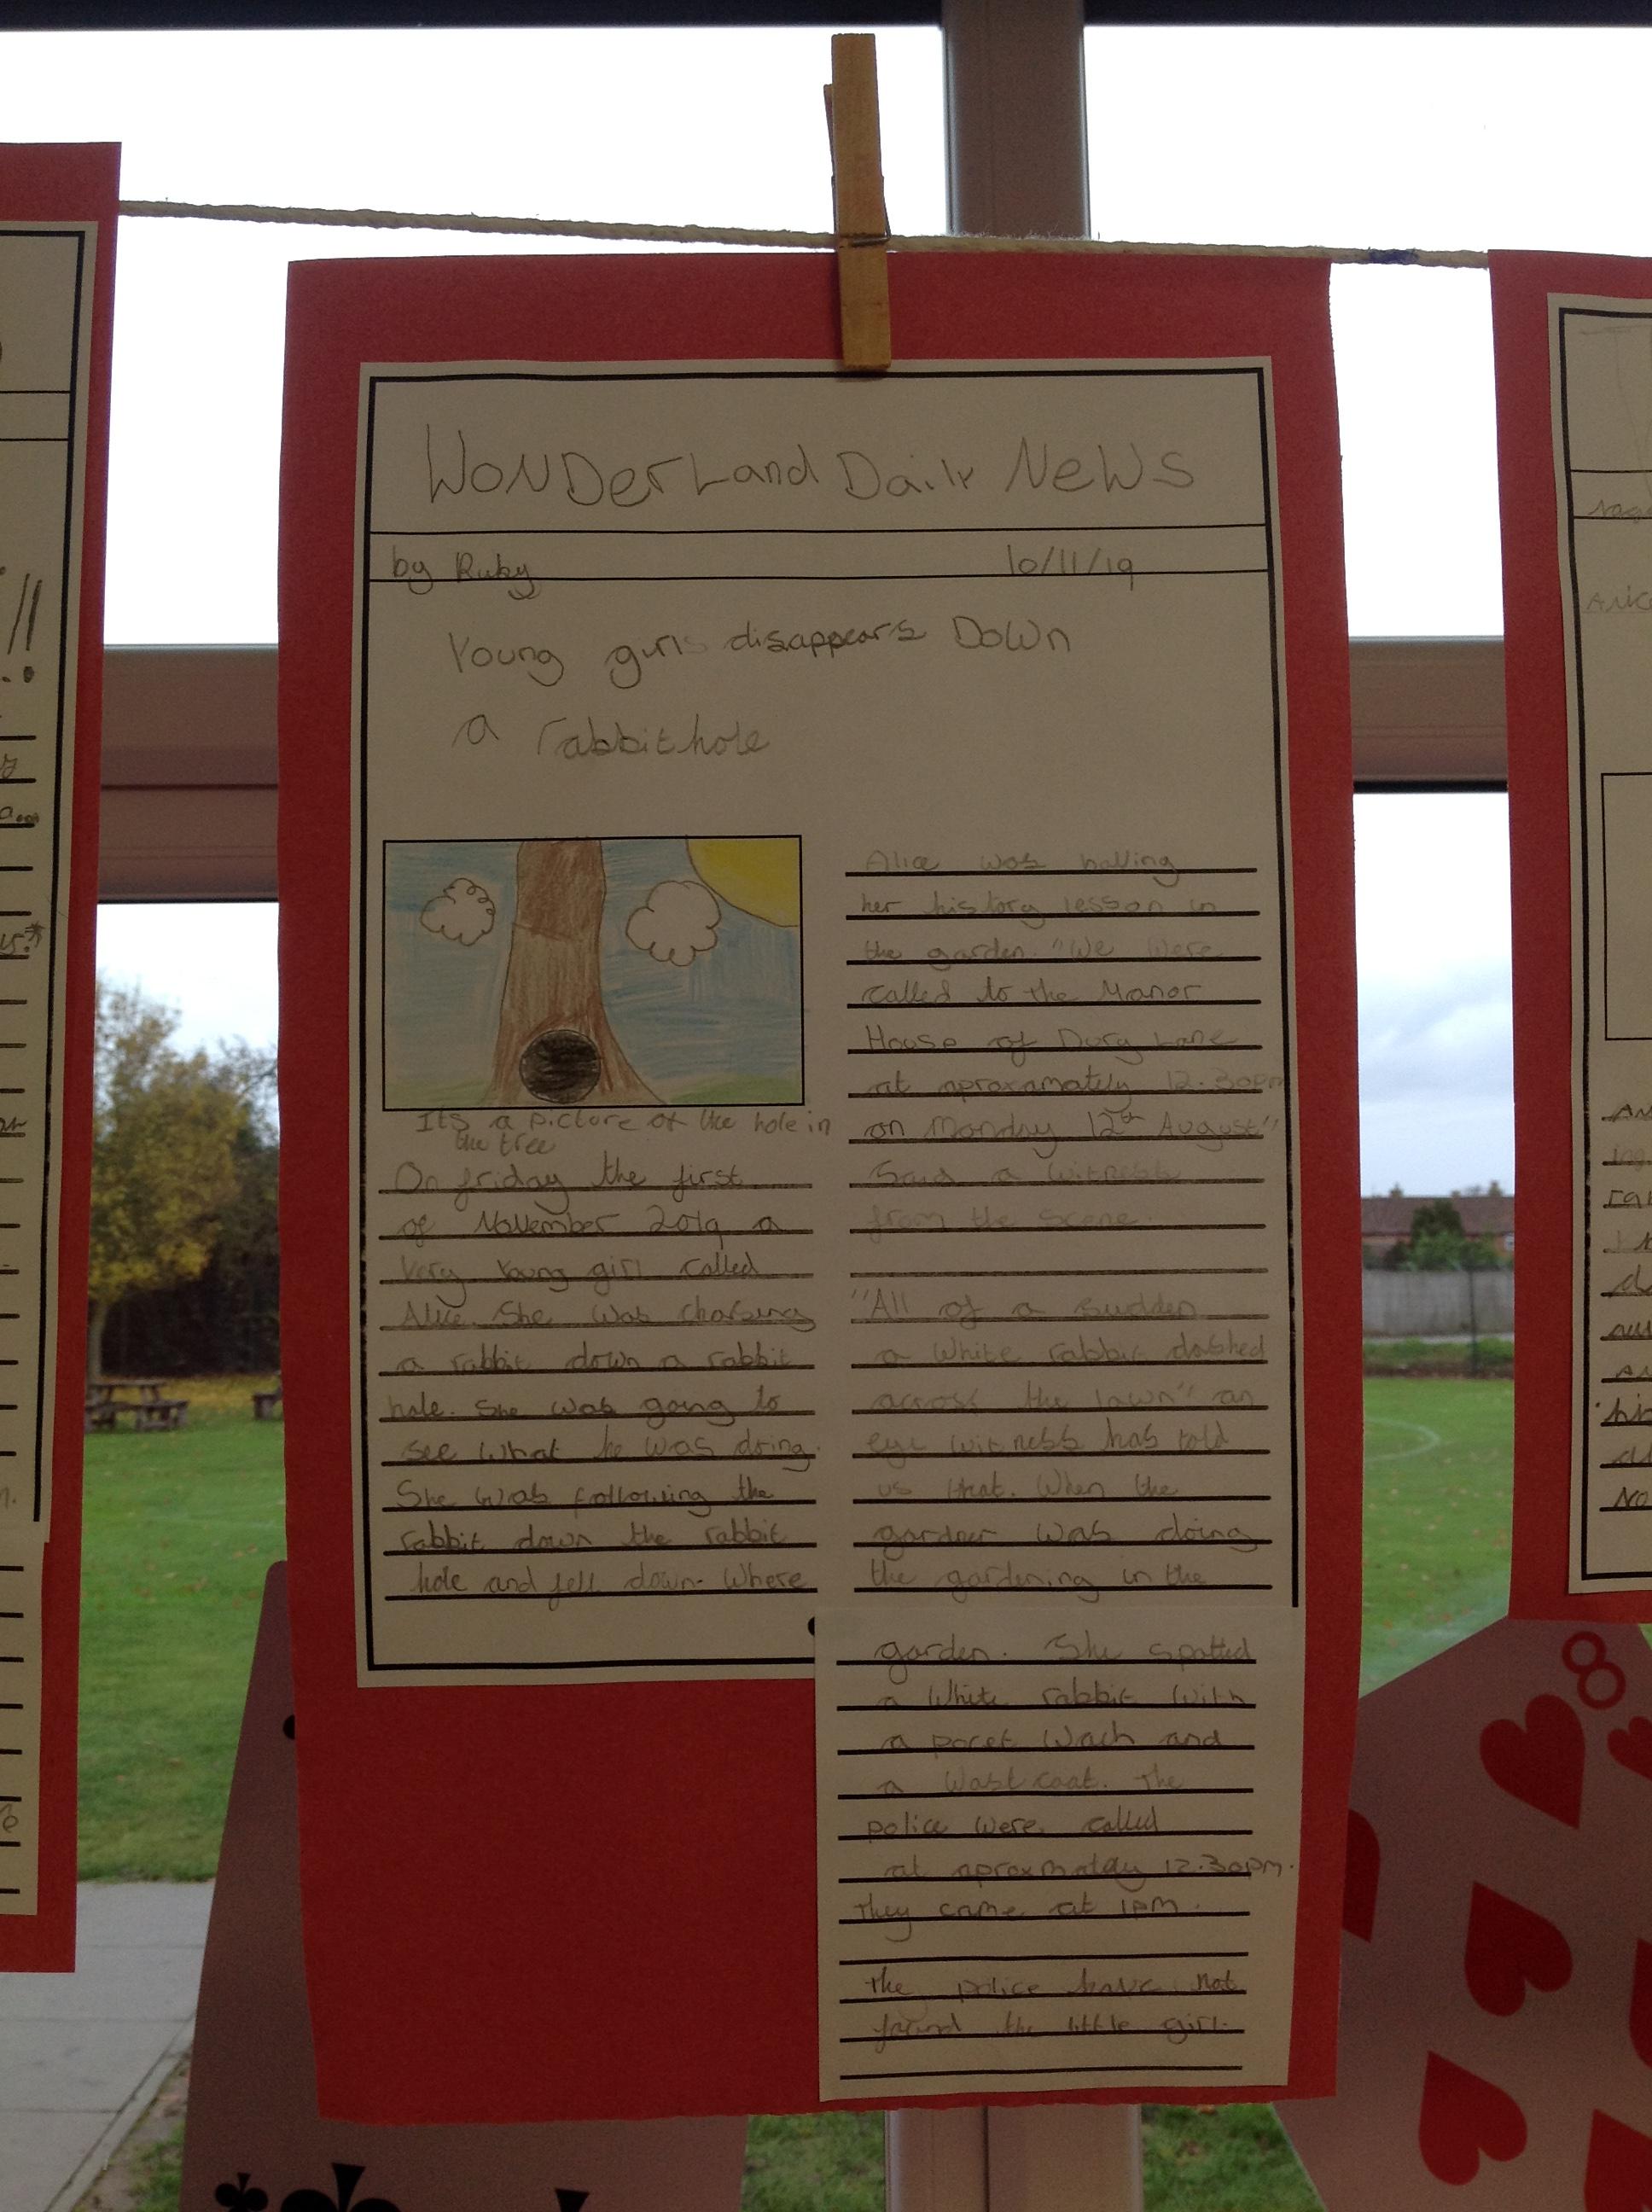 WONDerLand Daily News
by Ruby 10/11/19
Young girl disappears Down
a rabbit hole
Its a picture of the hole in
the tree
On friday the first
of November 2019 a
very young girl called
Alice. She was
a rabbit down a rabbit
hole. She was going to
see what he was doing.
She was following the
rabbit down the rabbit
hole and fell down. Where
Alice was
her history lesson in
the garden. "We were
called to the Manor
House of Lane
at aproxamately 12.30pm
on Monday 12th August"
Said a witness
from the scene.
"All of a sudden
a White rabbit dashed
across the lawn" an
eye witness has told
us that. When the
gardner was doing
the gardening in the
garden. She spotted
a White rabbit with
a Wach and
a Wastcoat. The
police were called
at 12.30pm.
They came at 1pm.
The police have not
found the little girl.
8